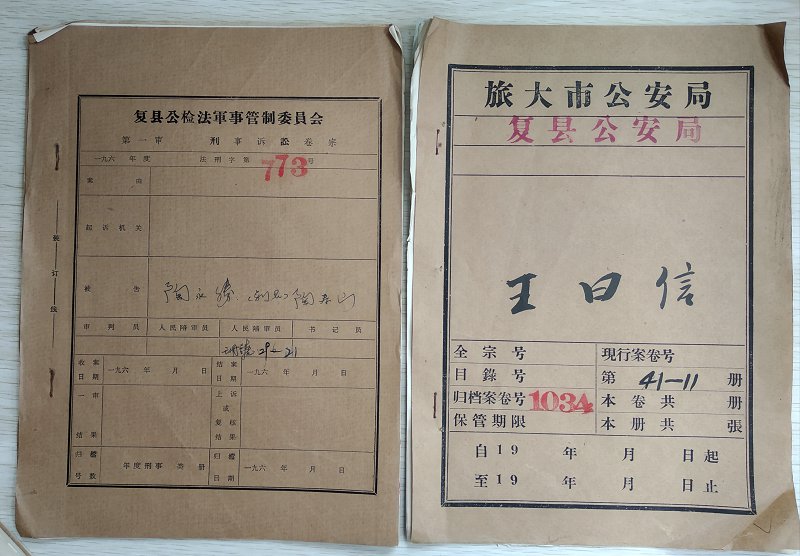 复县公检法軍事管制委員会
第一审 刑事诉訟卷宗
一九六 年度 法刑字第 773 号
案由
起诉机关
被告
审判員 人民陪审員 人民陪审員 书记員
29-21
收案日期 一九六 年 月 日 结案日期 一九六 年 月 日
一审结果 上诉或复核结果
归檔号数 年度刑事 类 册 归檔日期 一九六 年 月 日
装訂綫
旅大市公安局
复县公安局
王曰信
全宗号 現行案卷号
目錄号 第 41-11 册
归档案卷号 1034 本卷共 册
保管期限 本册共 張
自19 年 月 日起
至19 年 月 日止